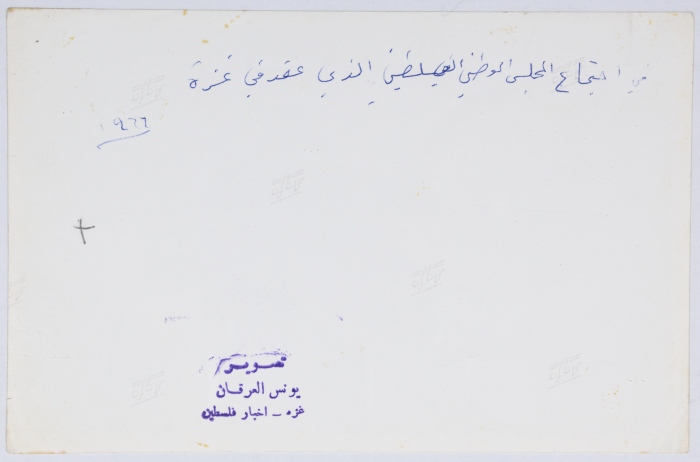 في اجتماع المجلس الوطني الفلسطيني الذي عقد في غزة
١٩٦٦
تصوير
يونس العرقان
غزه - اخبار فلسطين